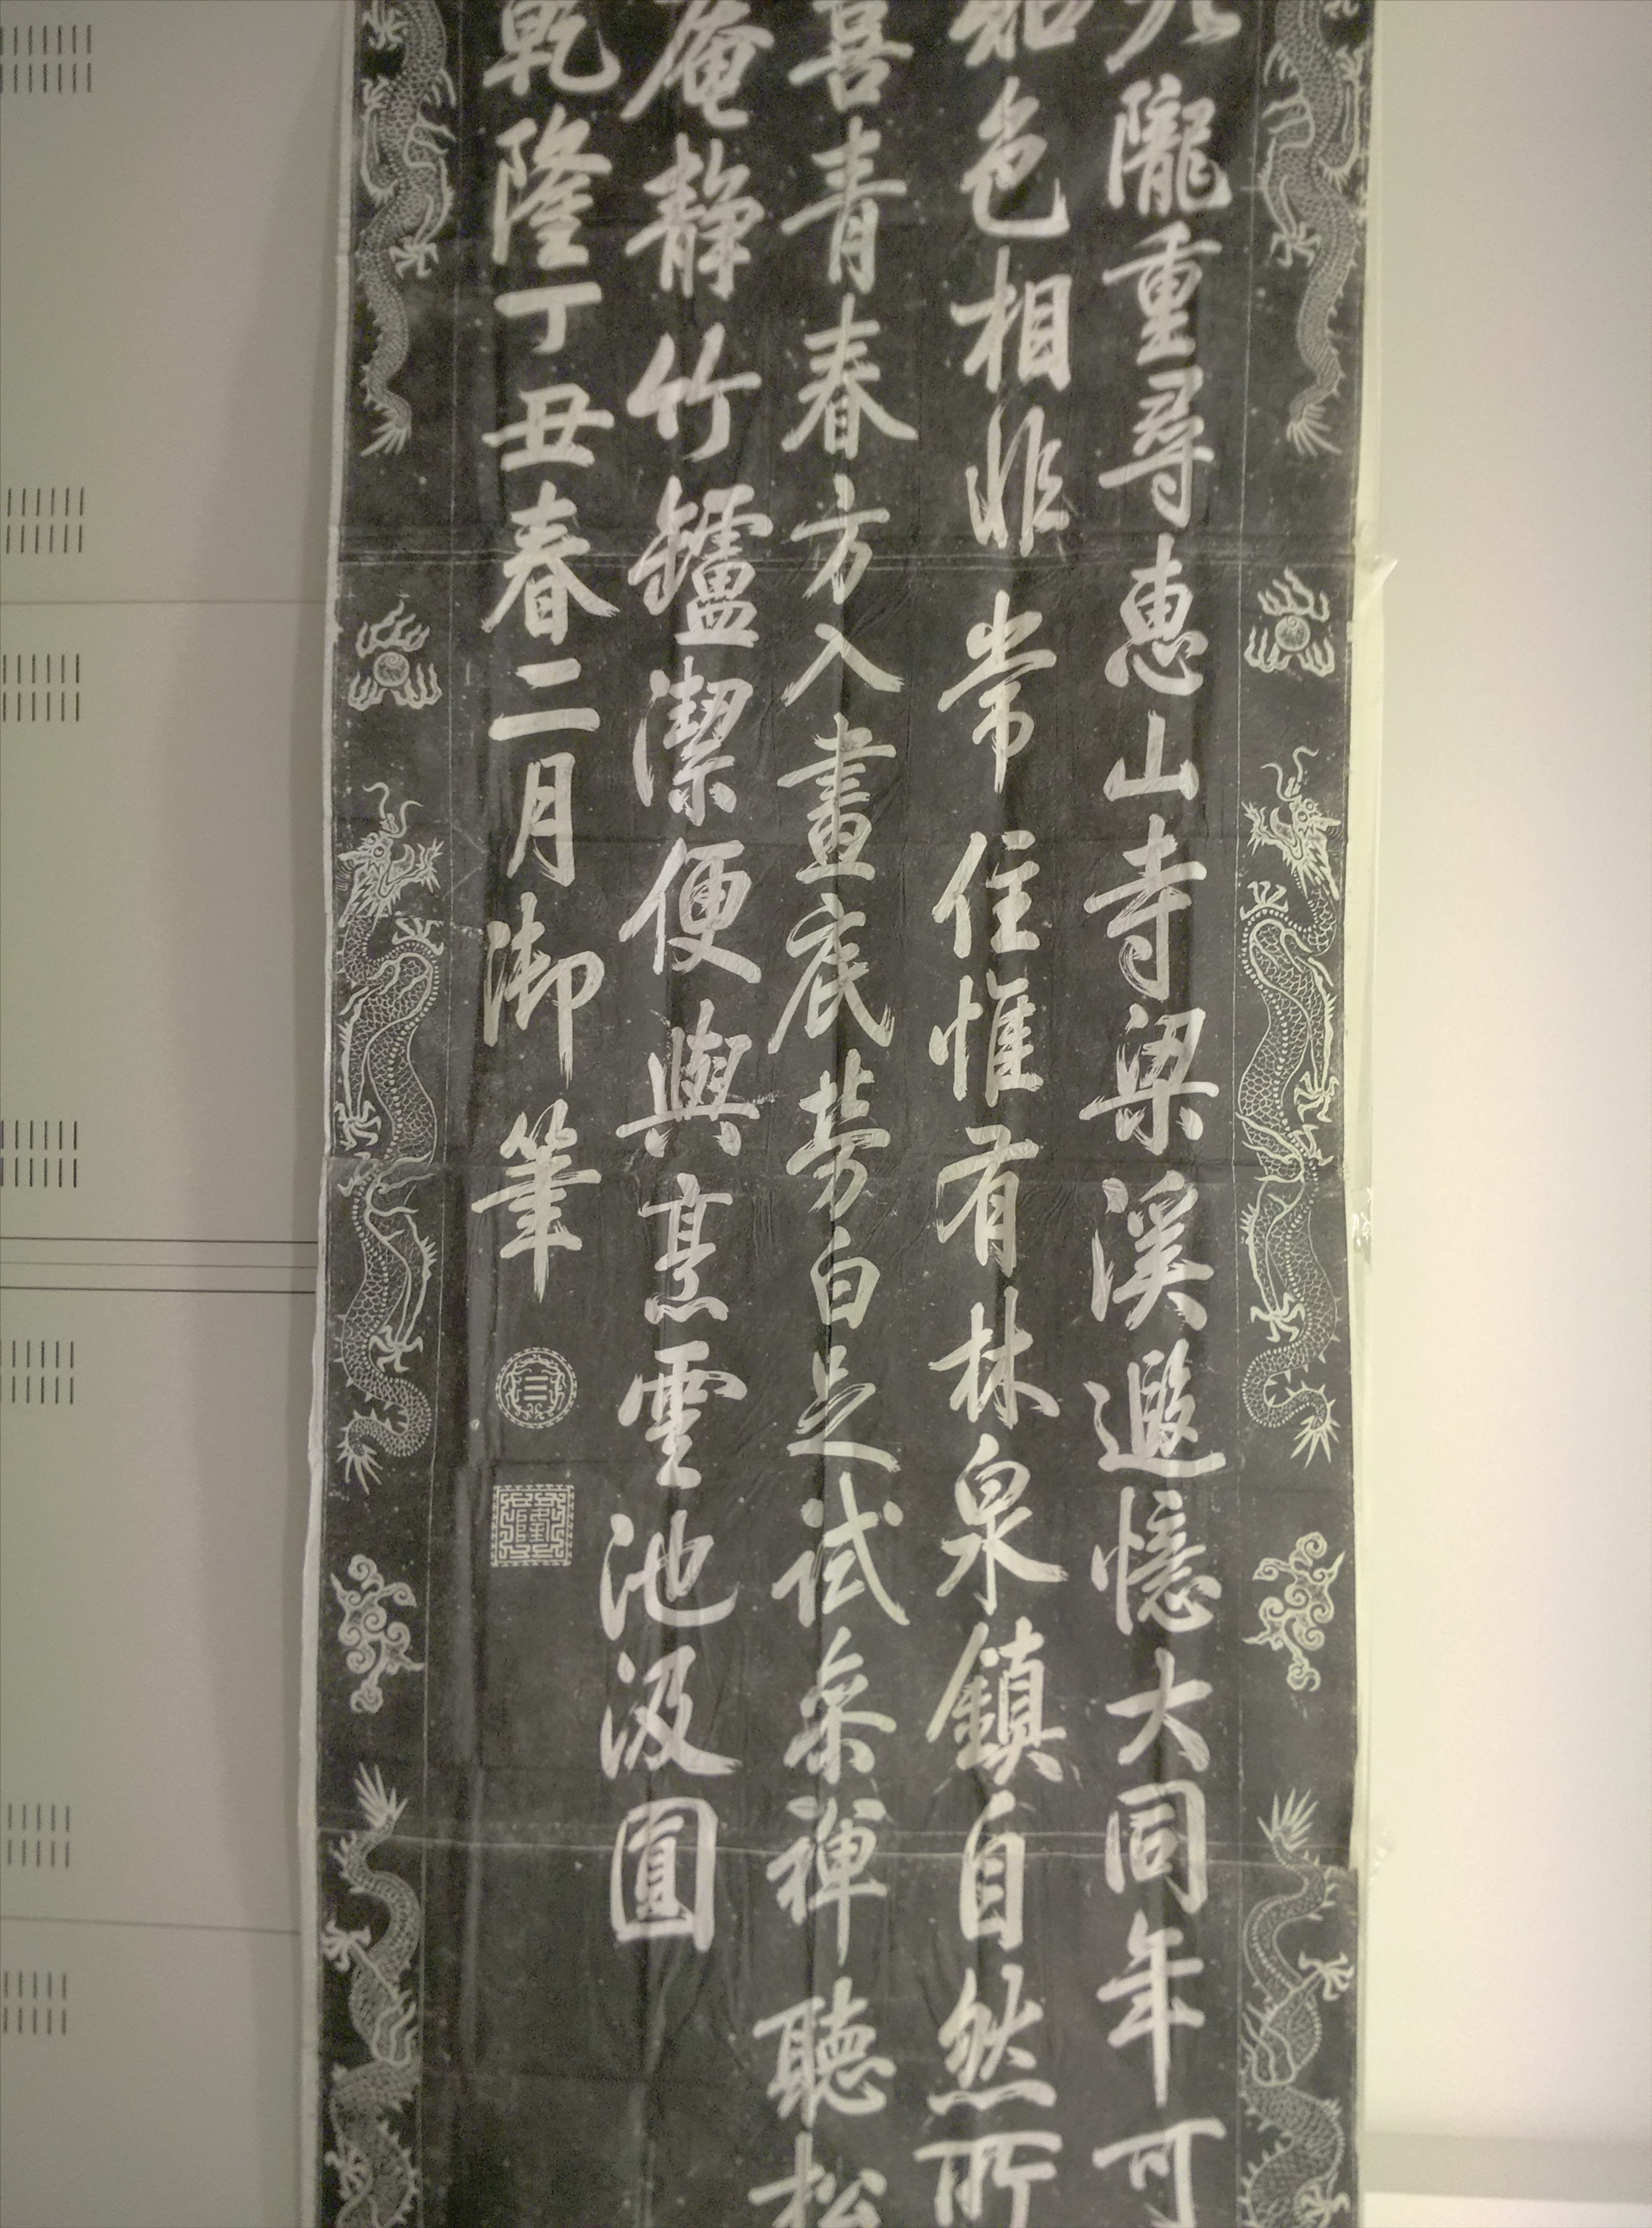 九隴重尋惠山寺梁溪遐憶大同年可
知色相非常住惟有林泉鎮自然所
喜青春方入畫底勞白足試參禪聽松
庵静竹罏潔便與烹雲池汲圓
乾隆丁丑春二月御筆
乾隆